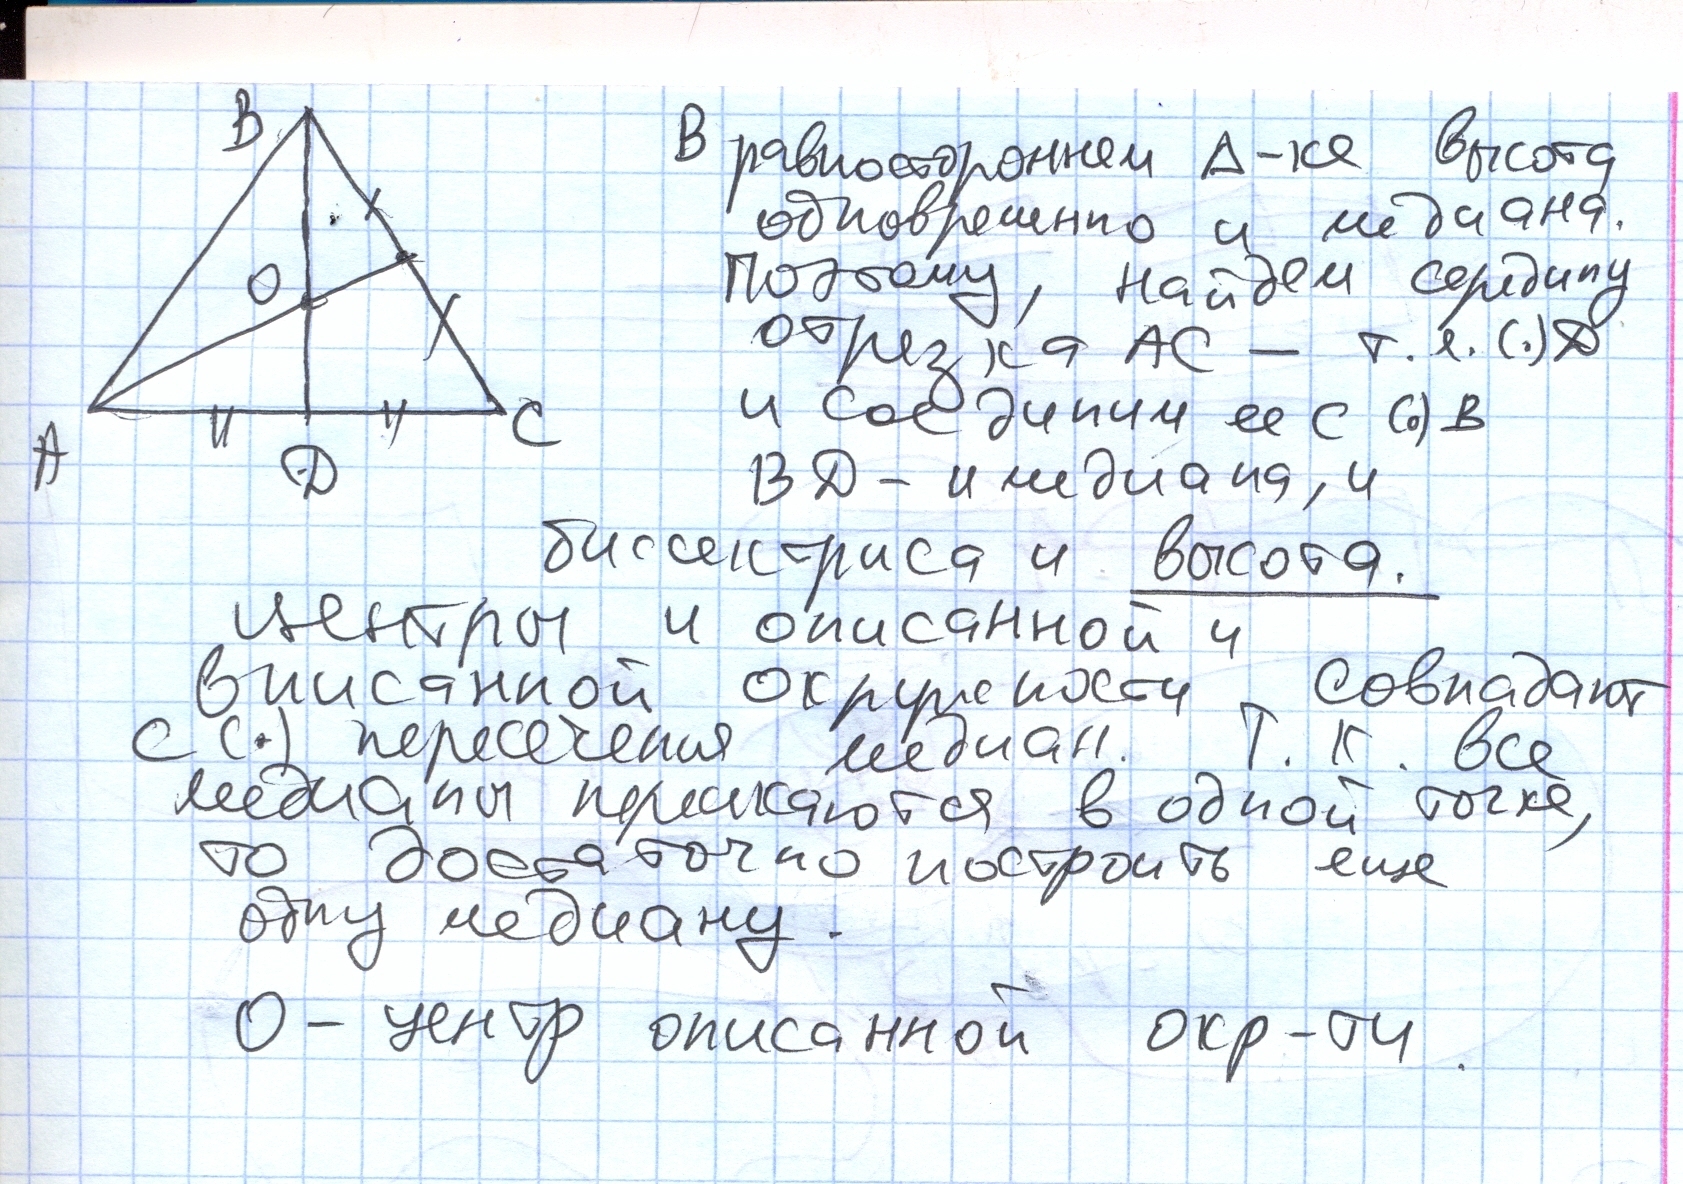 B
O
A
D
C
В равностороннем Δ-ке высота
одновременно и медиана.
Поэтому, найдем середину
отрезка AC — т.е. (.)D
и соединим ее с (.)B
BD - и медиана, и
биссектриса и высота.
центры и описанной и
вписанной окружности совпадают
с (.) пересечения медиан. Т.к. все
медианы пересекаются в одной точке,
то достаточно построить еще
одну медиану.
O - центр описанной окр-ти.